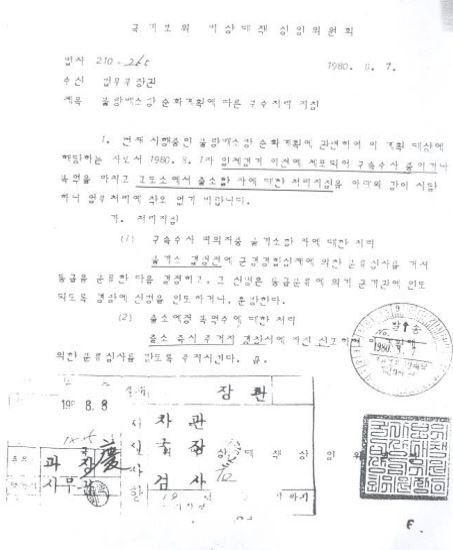 국가보위 비상대책 상임위원회
법사 210-260
1980. 8. 7.
수신 법무부장관
제목 불량배소탕 순화계획에 따른 구속처리 지침
1. 현재 시행중인 불량배소탕 순화계획에 관련하여 이 계획 대상에
해당하는 자로서 1980. 8. 1자 일제검거 이전에 체포되어 구속수사 중이거나
복역을 마치고 교도소에서 출소할 자에 대한 처리지침을 아래와 같이 시달
하니 업무처리에 착오 없기 바랍니다.
가. 처리지침
(1) 구속수사 피의자중 불기소할 자에 대한 처리
불기소 결정전에 군검경합심제에 의한 분류심사를 거쳐
등급을 분류한 다음 결정하고, 그 신병은 등급분류에 의거 군기관에 인도
되도록 경찰에 신병을 인도하거나, 훈방한다.
(2) 출소예정 복역수에 대한 처리
출소 즉시 주거지 경찰서에 자진 신고하여
의한 분류심사를 받도록 주지시킨다. 끝.
발송
No.
1980. 8. 7
198 8. 8
장관
차관
국장
검사
과장
사무관
慶
상대책상임위